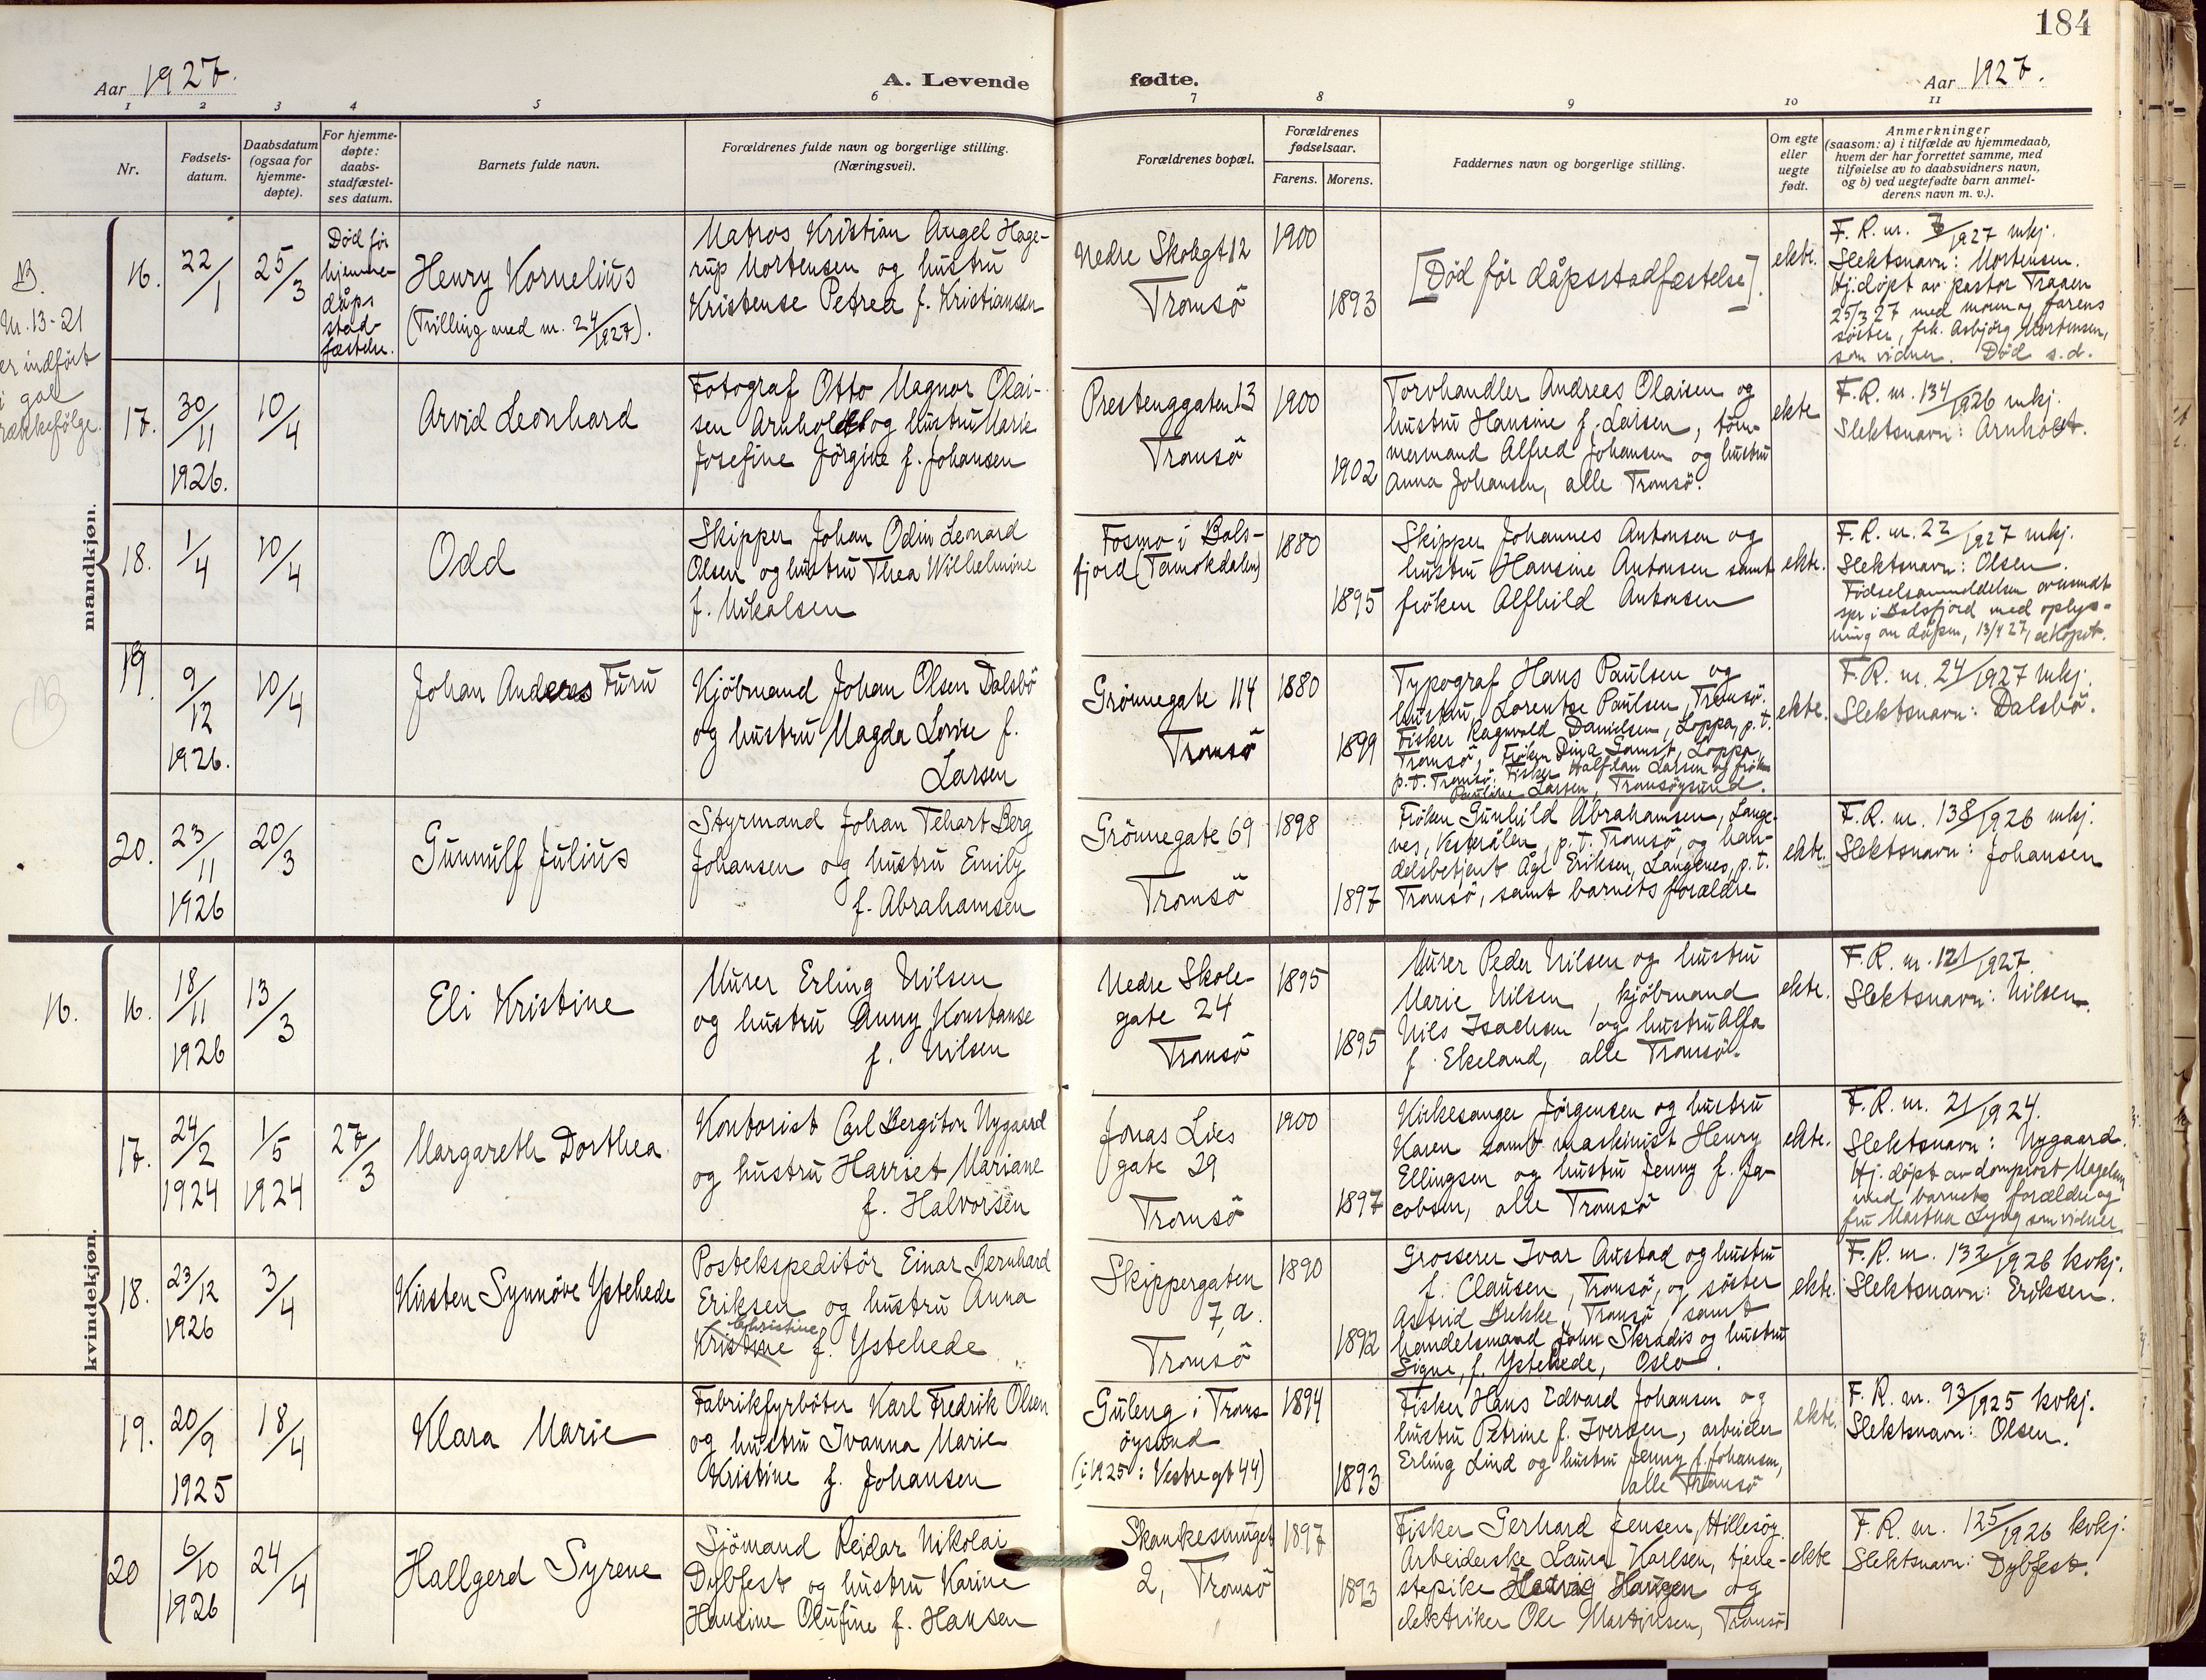 184
Aar 1927.
A. Levende fødte.
Aar 1927.
1 2 3 4 5 6 7 8 9 10 11
Nr.
Fødsels-
datum.
Daabsdatum
(ogsaa for
hjemme-
døpte).
For hjemme-
døpte:
daabs-
stadfæstel-
ses datum.
Barnets fulde navn.
Forældrenes fulde navn og borgerlige stilling.
(Næringsvei).
Forældrenes bopæl.
Forældrenes
fødselsaar.
Farens. Morens.
Faddernes navn og borgerlige stilling.
Om egte
eller
uegte
født.
Anmerkninger
(saasom: a) i tilfælde av hjemmedaab,
hvem der har forrettet samme, med
tilføielse av to daabsvidners navn,
og b) ved uegtefødte barn anmel-
derens navn m. v.).
NB.
Nr. 13-21
er indført
i gal
rækkefølge.
NB
mandkjøn.
16.
22/1
25/3
Død før
hjemme-
dåps
stad-
fæstelse.
Henry Kornelius
(Tvilling med nr. 24/1927).
Matros Kristian Angel Hage-
rup Mortensen og hustru
Kristense Petrea f. Kristiansen
Nedre Skolegt 12
Tromsö
1900
1893
[Död før dåpsstadfæstelse].
ekte.
F. R. nr. 7/1927 mkj.
Slektsnavn: Mortensen.
Hj. døpt av pastor Traaen
25/3 27 med moren og farens
søster, frk. Asbjørg Mortensen,
som vidner. Død s.d.
17.
30/11
1926.
10/4
Arvid Leonhard
Fotograf Otto Magnor Olai-
sen Arnholdt og hustru Marie
Josefine Jörgine f. Johansen
Prestenggaten 13
Tromsö
1900
1902
Torvhandler Andreas Olaisen og
hustru Hansine f. Larsen, töm-
mermand Alfred Johansen og hustru
Anna Johansen, alle Tromsö.
ekte
F. R. nr. 134/1926 mkj.
Slektsnavn: Arnholdt.
18.
1/4
10/4
Odd
Skipper Johan Odin Leonard
Olsen og hustru Thea Wilhelmine
f. Nikalsen
Fosmo i Bals-
fjord (Tamokdalen)
1880
1895
Skipper Johannes Antonsen og
hustru Hansine Antonsen samt
fröken Alfhild Antonsen
ekte.
F. R. nr. 22/1927 mkj.
Slektsnavn: Olsen.
Födselsanmeldelsen oversendt
spr. i Balsfjord med oplys-
ning om dåpen, 13/4 27,
19.
9/12
1926.
10/4
Johan Anderes Furu
Kjöbmand Johan Olsen Dalsbö
og hustru Magda Lovise f.
Larsen
Grönnegate 114
Tromsö
1880
1899
Typograf Hans Paulsen og
hustru Lorentse Paulsen, Tromsö.
Fisker Ragnvald Danielsen, Loppa, p. t.
Tromsö, Fröken Dina Gamst, Loppa,
p. t. Tromsö, Fisker Halfdan Larsen og fröken
Pauline Larsen, Tromsöysund.
ekte.
F. R. nr. 24/1927 mkj.
Slektsnavn: Dalsbö.
20.
23/11
1926
20/3
Gunnulf Julius
Styrmand Johan Tehart Berg
Johansen og hustru Emily
f. Abrahamsen
Grönnegate 69
Tromsö
1898
1897
Fröken Gunhild Abrahamsen, Lange-
nes, Vesterålen, p. t. Tromsö, og han-
delsbetjent Åge Eriksen, Langenes, p. t.
Tromsö, samt barnets forældre
ekte.
F. R. nr. 138/1926 mkj.
Slektsnavn: Johansen
kvindekjøn.
16.
16.
18/11
1926
13/3
Eli Kristine
Murer Erling Nilsen
og hustru Anny Konstanse
f. Nilsen
Nedre Skole-
gate 24
Tromsö
1895
1895
Murer Peder Nilsen og hustru
Marie Nilsen, kjöbmand
Nils Isachsen og hustru Alfa
f. Ekeland, alle Tromsö.
ekte.
F. R. nr. 121/1927.
Slektsnavn: Nilsen.
17.
24/2
1924
1/5
1924
27/3
Margareth Dorthea
Kontorist Carl Bergiton Nygaard
og hustru Harriet Mariane
f. Halvorsen
Jonas Lies
gate 29
Tromsö
1900
1897
Kirkesanger Jörgensen og hustru
Karen samt maskinist Henry
Ellingsen og hustru Jenny f. Ja-
cobsen, alle Tromsö
ekte.
F. R. nr. 21/1924.
Slektsnavn: Nygaard.
Hj. döpt av domprost Magelssen
med barnets forældre og
fru Martha Lyng som vidner
18.
23/12
1926
3/4
Kirsten Synnöve Ystehede
Postekspeditör Einar Bernhard
Eriksen og hustru Anna
Christine
Kristine f. Ystehede
Skippergaten
7, a.
Tromsö
1890
1892
Grosserer Ivar Austad og hustru
f. Clausen, Tromsö, og söster
Astrid Brekke, Tromsö, samt
handelsmand John Skradis og hustru
Signe, f. Ystehede, Oslo.
ekte.
F. R. nr. 132/1926 kvkj.
Slektsnavn: Eriksen.
19.
20/9
1925
18/4
Klara Marie
Fabrikfyrböter Karl Fredrik Olsen
og hustru Ivanna Marie
Kristine f. Johansen
Guleng i Troms-
öysund
(i 1925: Vestregt 44)
1894
1893
Fisker Hans Edvard Johansen og
hustru Petrine f. Iversen, arbeider
Erling Lind og hustru Jenny f. Johansen,
alle Tromsö
ekte.
F. R. nr. 93/1925 kvkj.
Slektsnavn: Olsen.
20
6/10
1926
24/4
Hallgerd Syrene
Sjömand Reidar Nikolai
Dybfest og hustru Karine
Hansine Olufine f. Hansen
Skankesmuget
2, Tromsö
1897
1893
Fisker Gerhard Jensen, Hillesöy.
Arbeiderske Laura Karlsen, tjene-
stepike Hedvig Haugen og
elektriker Ole Martinsen, Tromsö
ekte
F. R. nr. 125/1926 kvkj.
Slektsnavn: Dybfest.